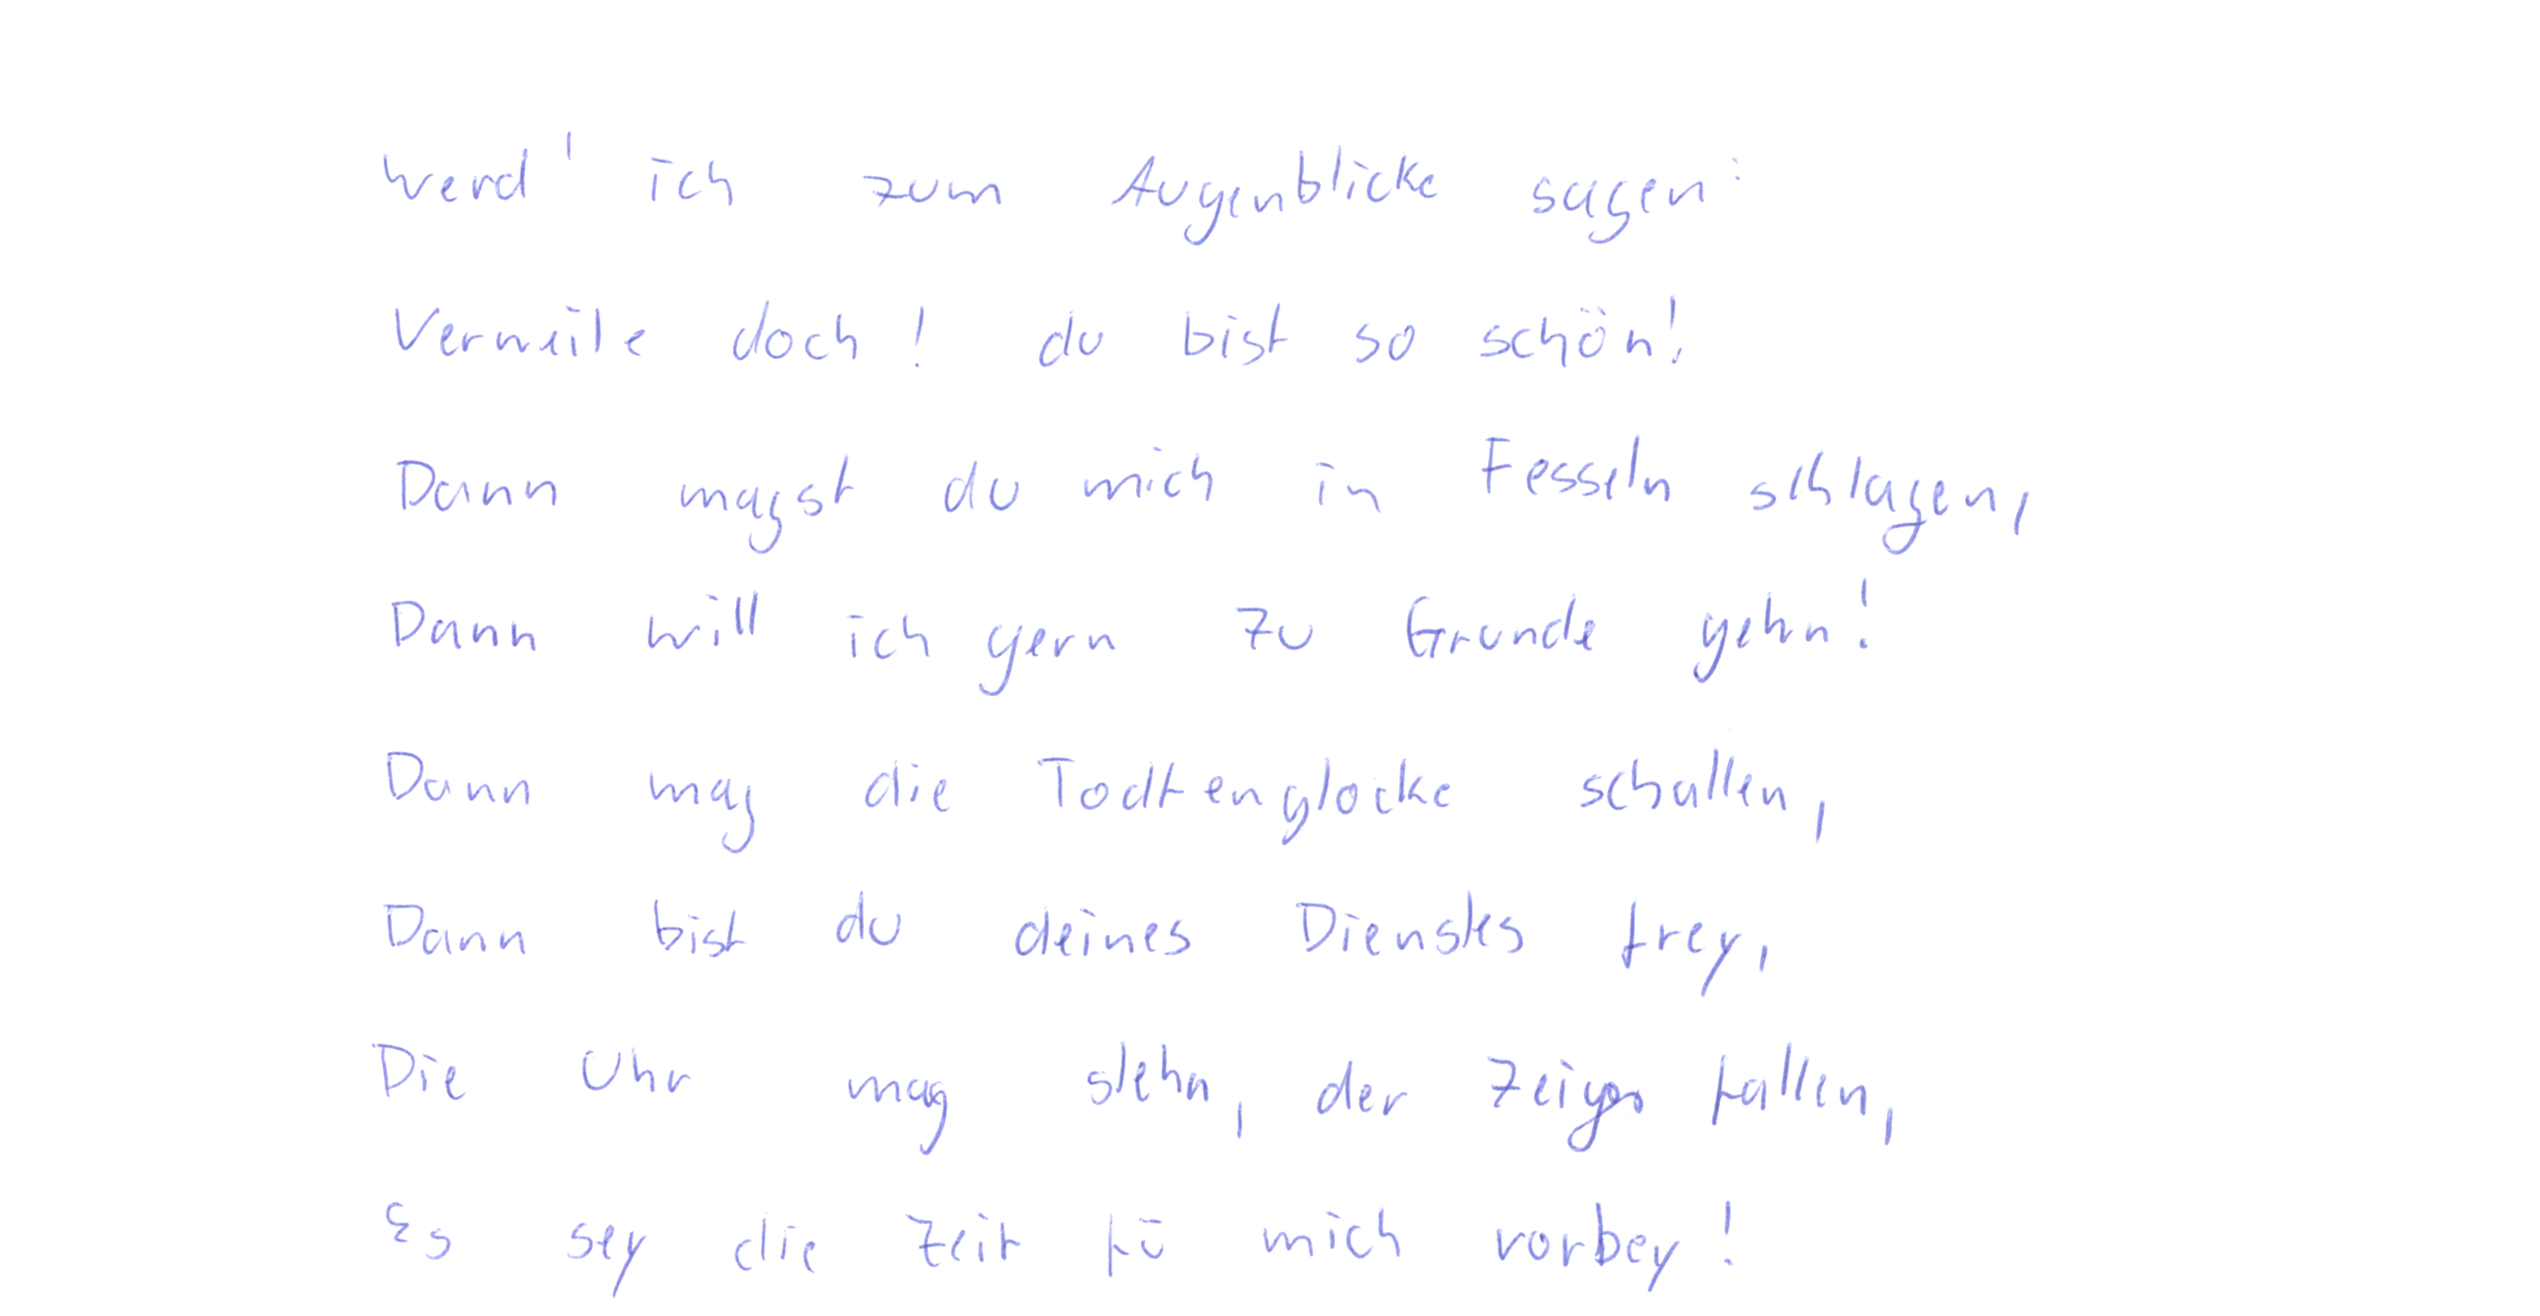 Werd' ich zum Augenblicke sagen:
Verweile doch! du bist so schön!
Dann magst du mich in Fesseln schlagen,
Dann will ich gern zu Grunde gehn!
Dann mag die Todtenglocke schallen,
Dann bist du deines Dienstes frey,
Die Uhr mag stehn, der Zeiger fallen,
Es sey die Zeit fü mich vorbey!